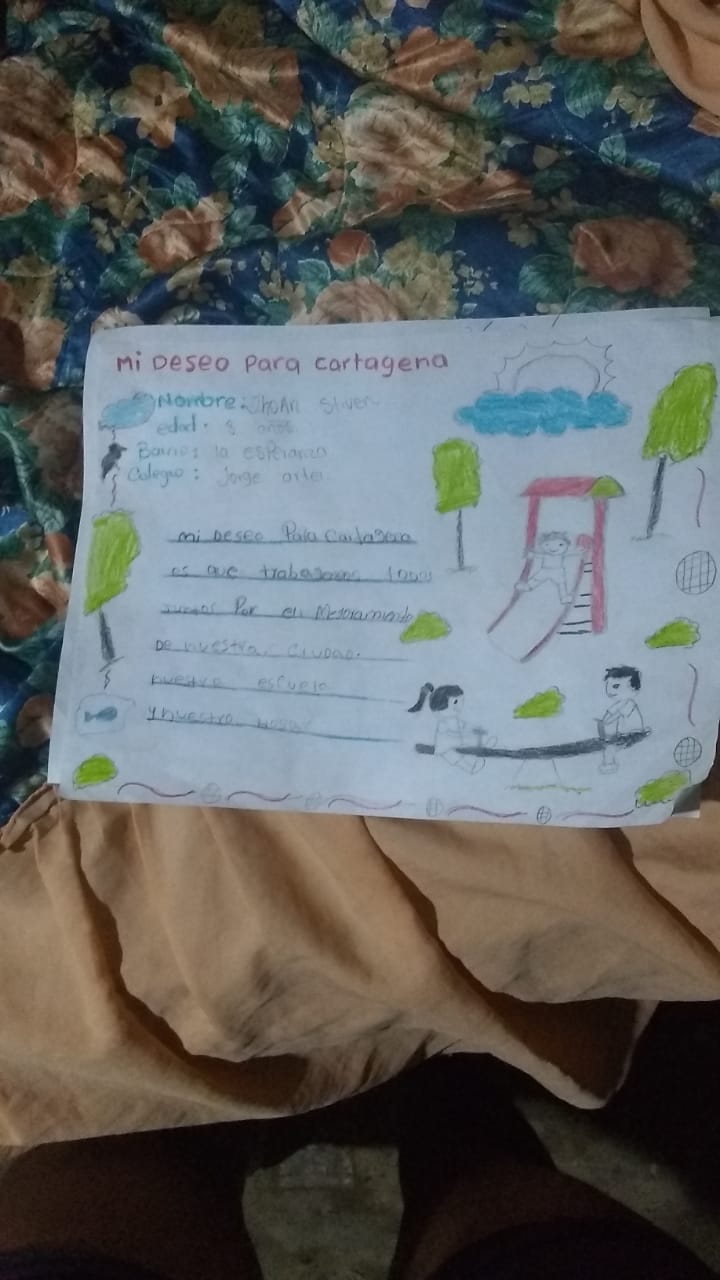 Mi Deseo Para Cartagena
Nombre: JhoAn Stiven
edad: 8 años
Barrio: la esperanza
Colegio: Jorge artel
mi Deseo Para Cartagena
es que trabagemos todos
juntos Por el Mejoramiento
De nuestra ciudad.
nuestra escuela
y nuestro hogar